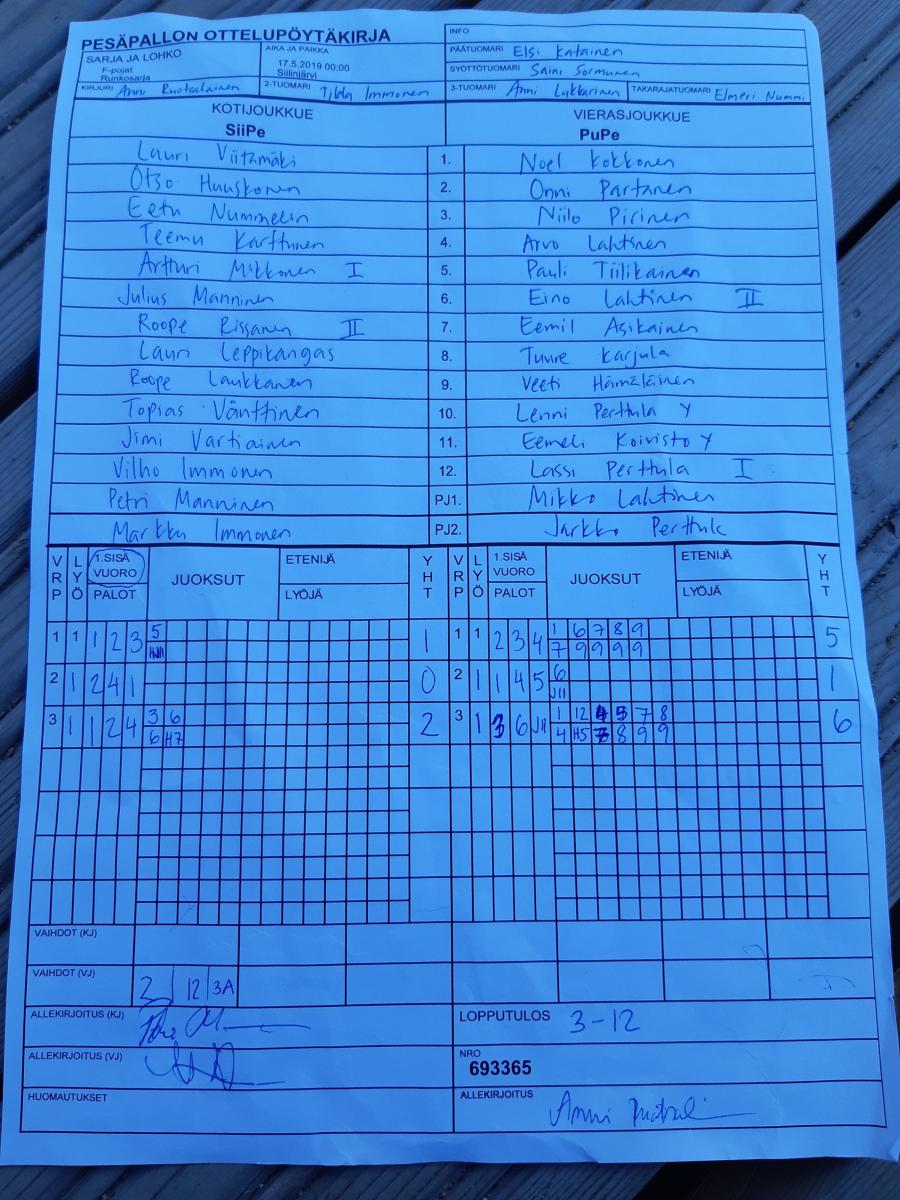 PESÄPALLON OTTELUPÖYTÄKIRJA
INFO
SARJA JA LOHKO
F-pojat
Runkosarja
AIKA JA PAIKKA
17.5.2019 00:00
Siilinjärvi
PÄÄTUOMARI Elsi Katainen
SYÖTTÖTUOMARI Saini Sormunen
KIRJURI Anni Ruotsalainen
2-TUOMARI Tilda Immonen
3-TUOMARI Anni Lukkarinen
TAKARAJATUOMARI Elmeri Nummi
KOTIJOUKKUE
SiiPe
VIERASJOUKKUE
PuPe
Lauri Viitamäki 1. Noel Kokkonen
Otso Huuskonen 2. Onni Partanen
Eetu Nummelin 3. Niilo Pirinen
Teemu Karttunen 4. Arvo Lahtinen
Artturi Mikkonen I 5. Pauli Tiilikainen
Julius Manninen 6. Eino Lahtinen II
Roope Rissanen II 7. Eemil Asikainen
Lauri Leppikangas 8. Tuure Karjula
Roope Laukkanen 9. Veeti Hämäläinen
Topias Vänttinen 10. Lenni Perttula Y
Jimi Vartiainen 11. Eemeli Koivisto Y
Vilho Immonen 12. Lassi Perttula I
Petri Manninen PJ1. Mikko Lahtinen
Markku Immonen PJ2. Jarkko Perttula
VRP LYÖ 1.SISÄ VUORO PALOT JUOKSUT ETENIJÄ LYÖJÄ YHT VRP LYÖ 1.SISÄ VUORO PALOT JUOKSUT ETENIJÄ LYÖJÄ YHT
1 1 1 2 3 5 1 1 1 2 3 4 1 6 7 8 9 5
7 9 9 9 9
2 1 2 4 1 0 2 1 1 4 5 6 1
JII
3 1 1 2 4 3 6 2 3 1 3 6 JII 1 12 4 5 7 8 6
6 H7 4 H5 7 8 9 9
VAIHDOT (KJ)
VAIHDOT (VJ) 2 12 3A
ALLEKIRJOITUS (KJ)
LOPPUTULOS 3-12
ALLEKIRJOITUS (VJ)
NRO
693365
HUOMAUTUKSET
ALLEKIRJOITUS Anni